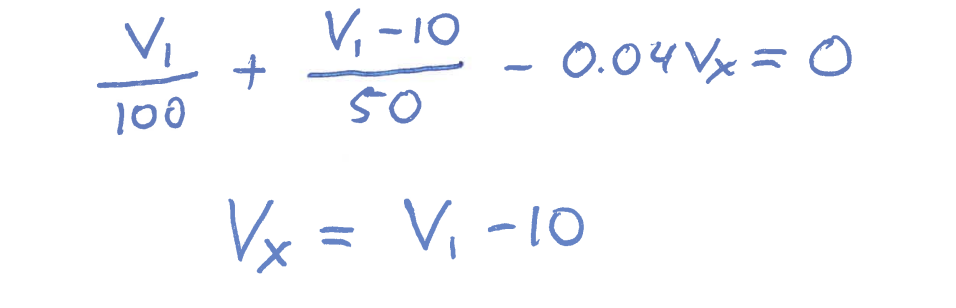 V₁/100 + (V₁-10)/50 - 0.04Vₓ = 0
Vₓ = V₁ - 10